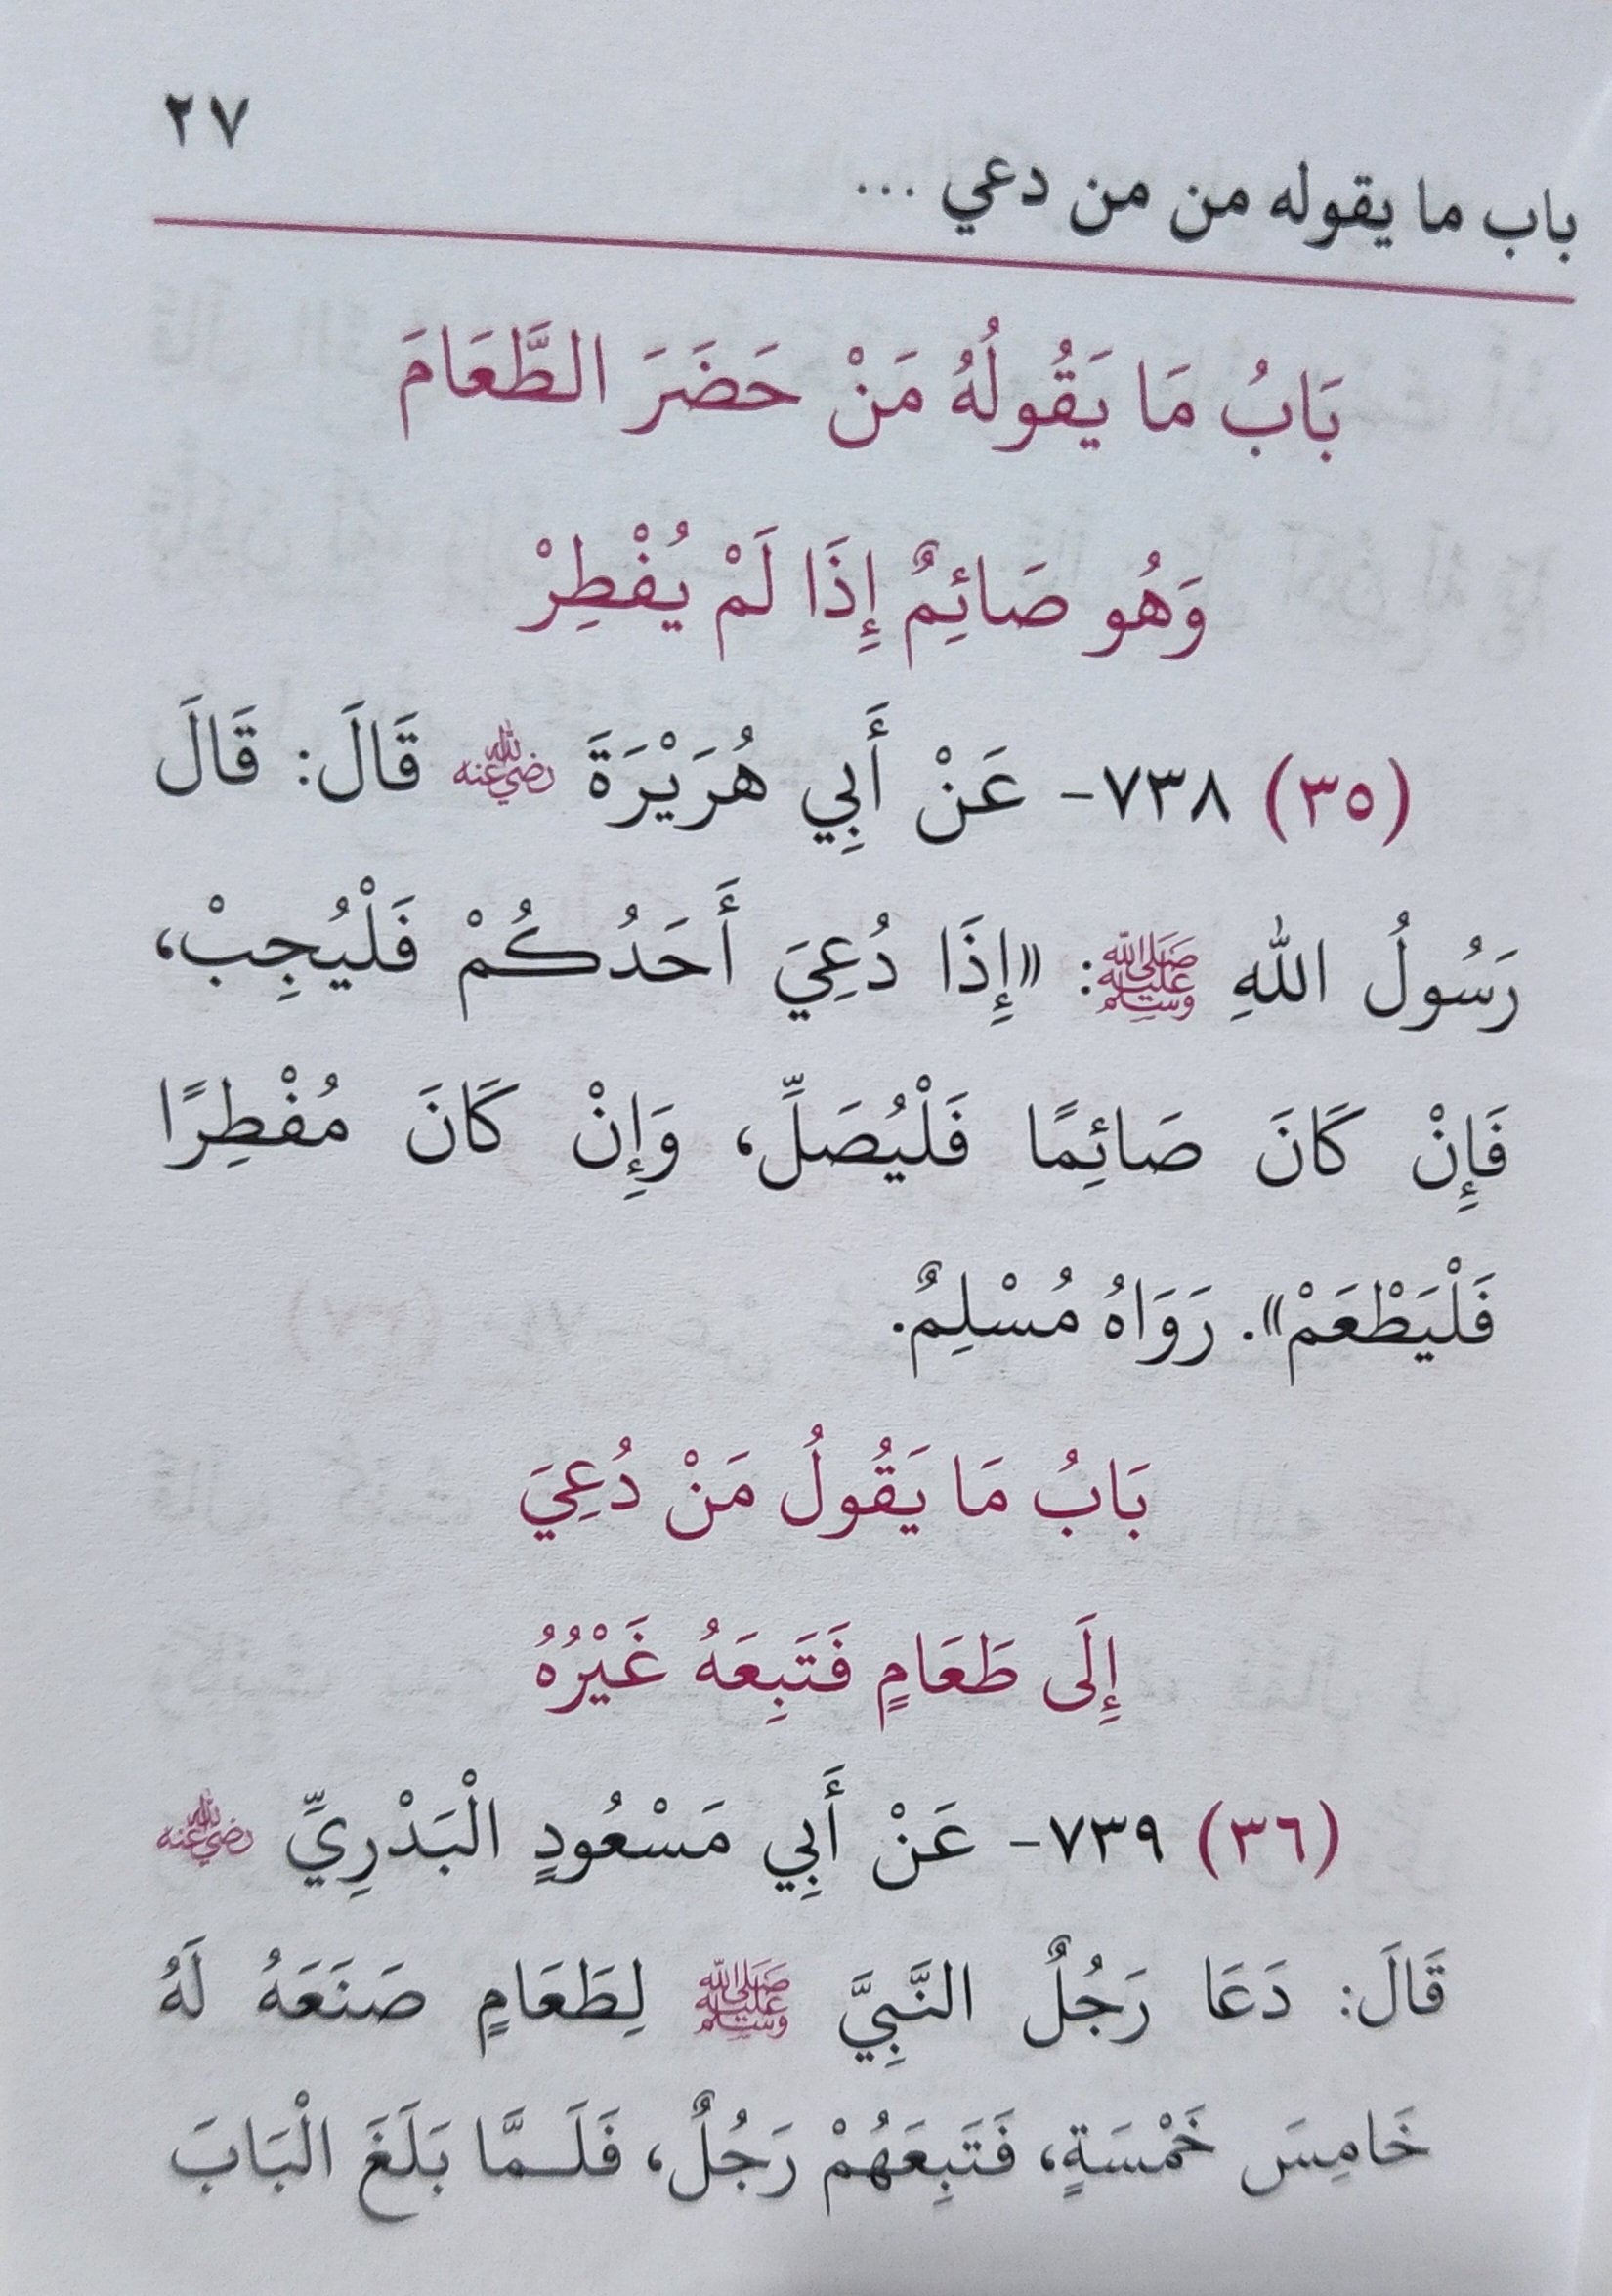 باب ما يقوله من من دعي ... ٢٧
بَابُ مَا يَقُولُهُ مَنْ حَضَرَ الطَّعَامَ
وَهُو صَائِمٌ إِذَا لَمْ يُفْطِرْ
(٣٥) ٧٣٨- عَنْ أَبِي هُرَيْرَةَ رضي الله عنه قَالَ: قَالَ
رَسُولُ اللهِ ﷺ: «إِذَا دُعِيَ أَحَدُكُمْ فَلْيُجِبْ،
فَإِنْ كَانَ صَائِمًا فَلْيُصَلِّ، وَإِنْ كَانَ مُفْطِرًا
فَلْيَطْعَمْ». رَوَاهُ مُسْلِمٌ.
بَابُ مَا يَقُولُ مَنْ دُعِيَ
إِلَى طَعَامٍ فَتَبِعَهُ غَيْرُهُ
(٣٦) ٧٣٩- عَنْ أَبِي مَسْعُودٍ الْبَدْرِيِّ رضي الله عنه
قَالَ: دَعَا رَجُلٌ النَّبِيَّ ﷺ لِطَعَامٍ صَنَعَهُ لَهُ
خَامِسَ خَمْسَةٍ، فَتَبِعَهُمْ رَجُلٌ، فَلَـمَّا بَلَغَ الْبَابَ